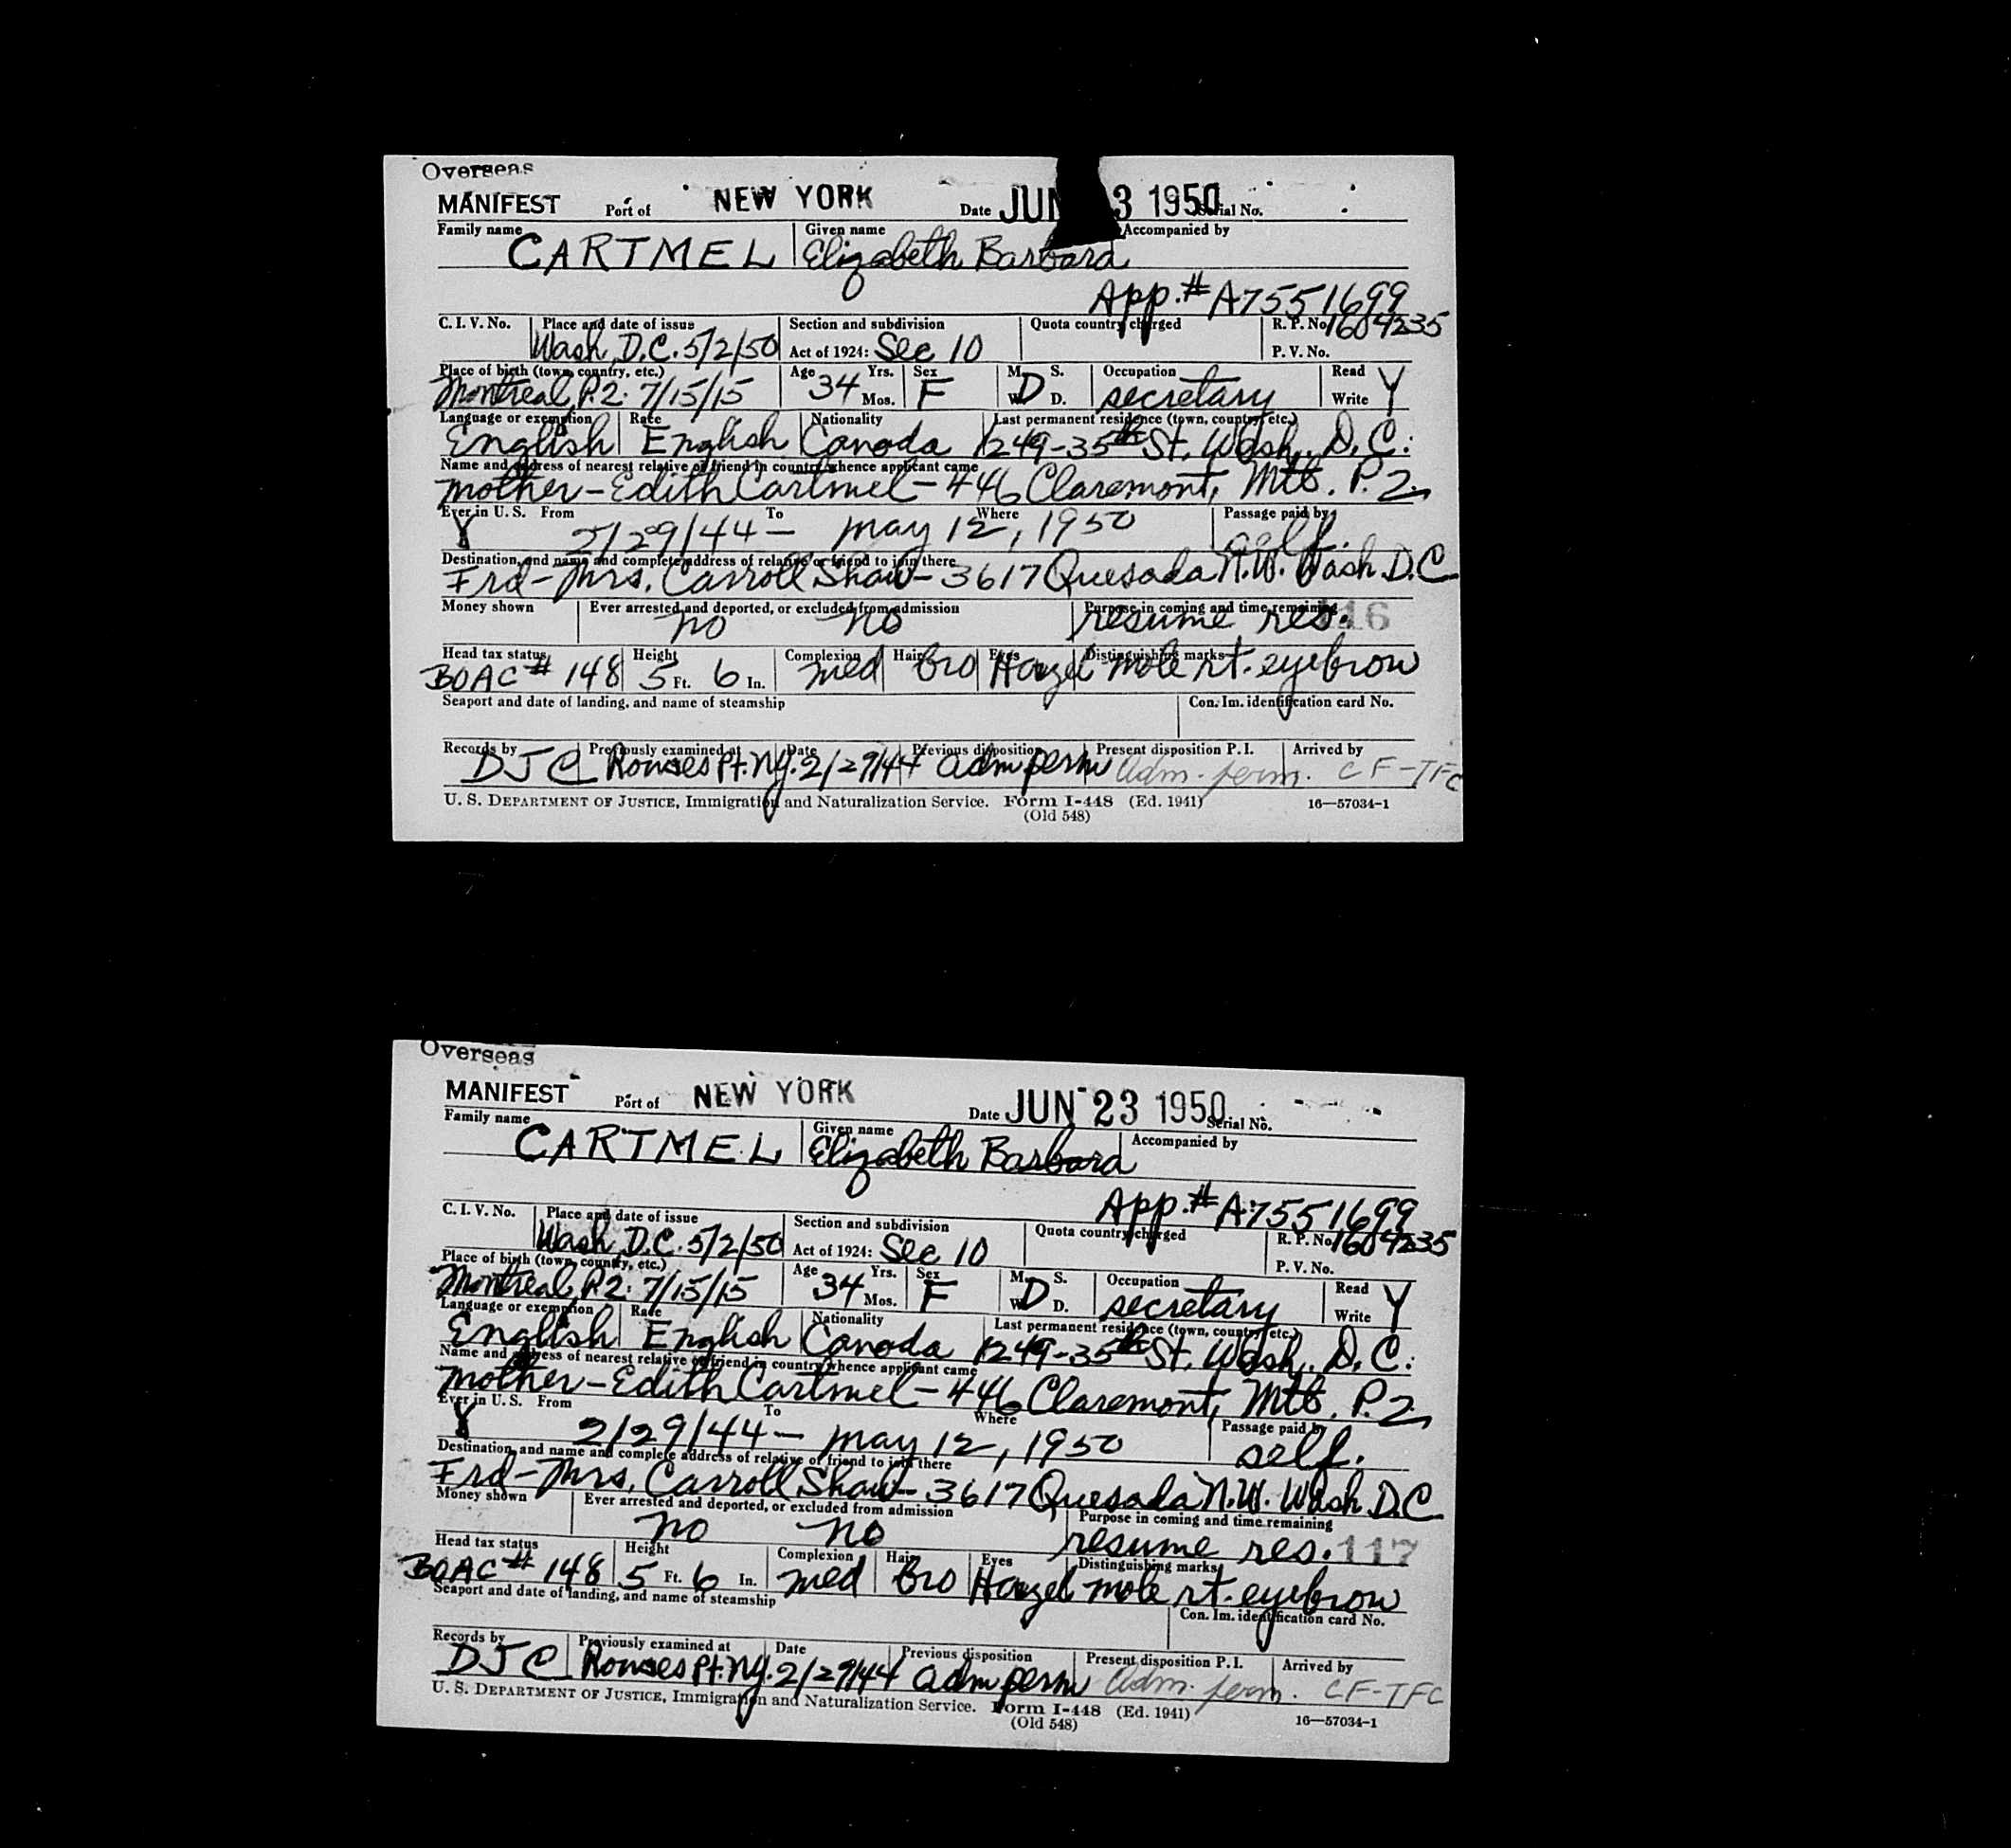 Overseas
MANIFEST Port of NEW YORK Date JUN 3 1950 Serial No.
Family name CARTMEL Given name Elizabeth Barbara Accompanied by
App. # A7551699
C. I. V. No. Place and date of issue Wash, D.C. 5/2/50 Section and subdivision Act of 1924: Sec 10 Quota country charged R. P. No. 1604235
P. V. No.
Place of birth (town, country, etc.) Montreal, P.Q. 7/15/15 Age 34 Yrs. Mos. Sex F M. S. W. D. D Occupation secretary Read Write Y
Language or exemption English Race English Nationality Canada Last permanent residence (town, country, etc.) 1249-35th St. Wash., D.C.
Name and address of nearest relative or friend in country whence applicant came
mother - Edith Cartmel - 446 Claremont, Mtl. P.Q.
Ever in U. S. Y From 2/29/44 - To May 12, 1950 Where Passage paid by self.
Destination, and name and complete address of relative or friend to join there
Frd - Mrs. Carroll Shaw - 3617 Quesada N.W. Wash D.C
Money shown Ever arrested and deported, or excluded from admission no no Purpose in coming and time remaining resume res. 116
Head tax status BOAC # 148 Height 5 Ft. 6 In. Complexion med Hair bro Eyes Hazel Distinguishing marks mole rt. eyebrow
Seaport and date of landing, and name of steamship Con. Im. identification card No.
Records by DJC Previously examined at Rouses Pt. NY. Date 2/29/44 Previous disposition adm perm Present disposition P. I. adm. perm. Arrived by CF-TFC
U. S. DEPARTMENT OF JUSTICE, Immigration and Naturalization Service. Form I-448 (Ed. 1941) 16—57034-1
(Old 548)
Overseas
MANIFEST Port of NEW YORK Date JUN 23 1950 Serial No.
Family name CARTMEL Given name Elizabeth Barbara Accompanied by
App. # A7551699
C. I. V. No. Place and date of issue Wash, D.C. 5/2/50 Section and subdivision Act of 1924: Sec 10 Quota country charged R. P. No. 1604235
P. V. No.
Place of birth (town, country, etc.) Montreal, P.Q. 7/15/15 Age 34 Yrs. Mos. Sex F M. S. W. D. D Occupation secretary Read Write Y
Language or exemption English Race English Nationality Canada Last permanent residence (town, country, etc.) 1249-35th St. Wash., D.C.
Name and address of nearest relative or friend in country whence applicant came
mother - Edith Cartmel - 446 Claremont, Mtl. P.Q.
Ever in U. S. Y From 2/29/44 - To May 12, 1950 Where Passage paid by self.
Destination, and name and complete address of relative or friend to join there
Frd - Mrs. Carroll Shaw - 3617 Quesada N.W. Wash D.C
Money shown Ever arrested and deported, or excluded from admission no no Purpose in coming and time remaining resume res. 117
Head tax status BOAC # 148 Height 5 Ft. 6 In. Complexion med Hair bro Eyes Hazel Distinguishing marks mole rt. eyebrow
Seaport and date of landing, and name of steamship Con. Im. identification card No.
Records by DJC Previously examined at Rouses Pt. NY. Date 2/29/44 Previous disposition adm perm Present disposition P. I. adm. perm. Arrived by CF-TFC
U. S. DEPARTMENT OF JUSTICE, Immigration and Naturalization Service. Form I-448 (Ed. 1941) 16—57034-1
(Old 548)